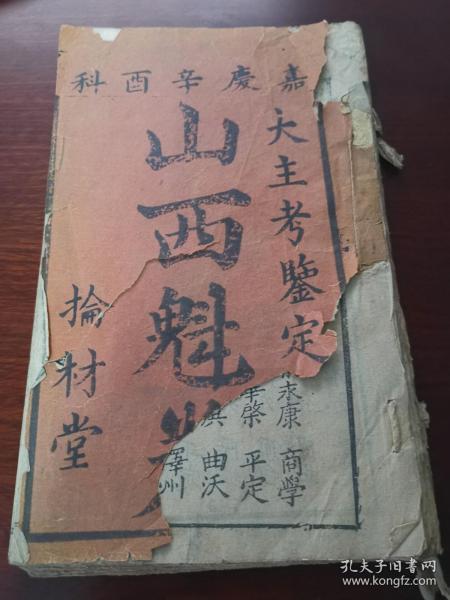 嘉慶辛酉科
大主考鑒定
山西魁
掄材堂
永康 商學
棨 平定
淇 曲沃
澤州
孔夫子旧书网
www.kongfz.com